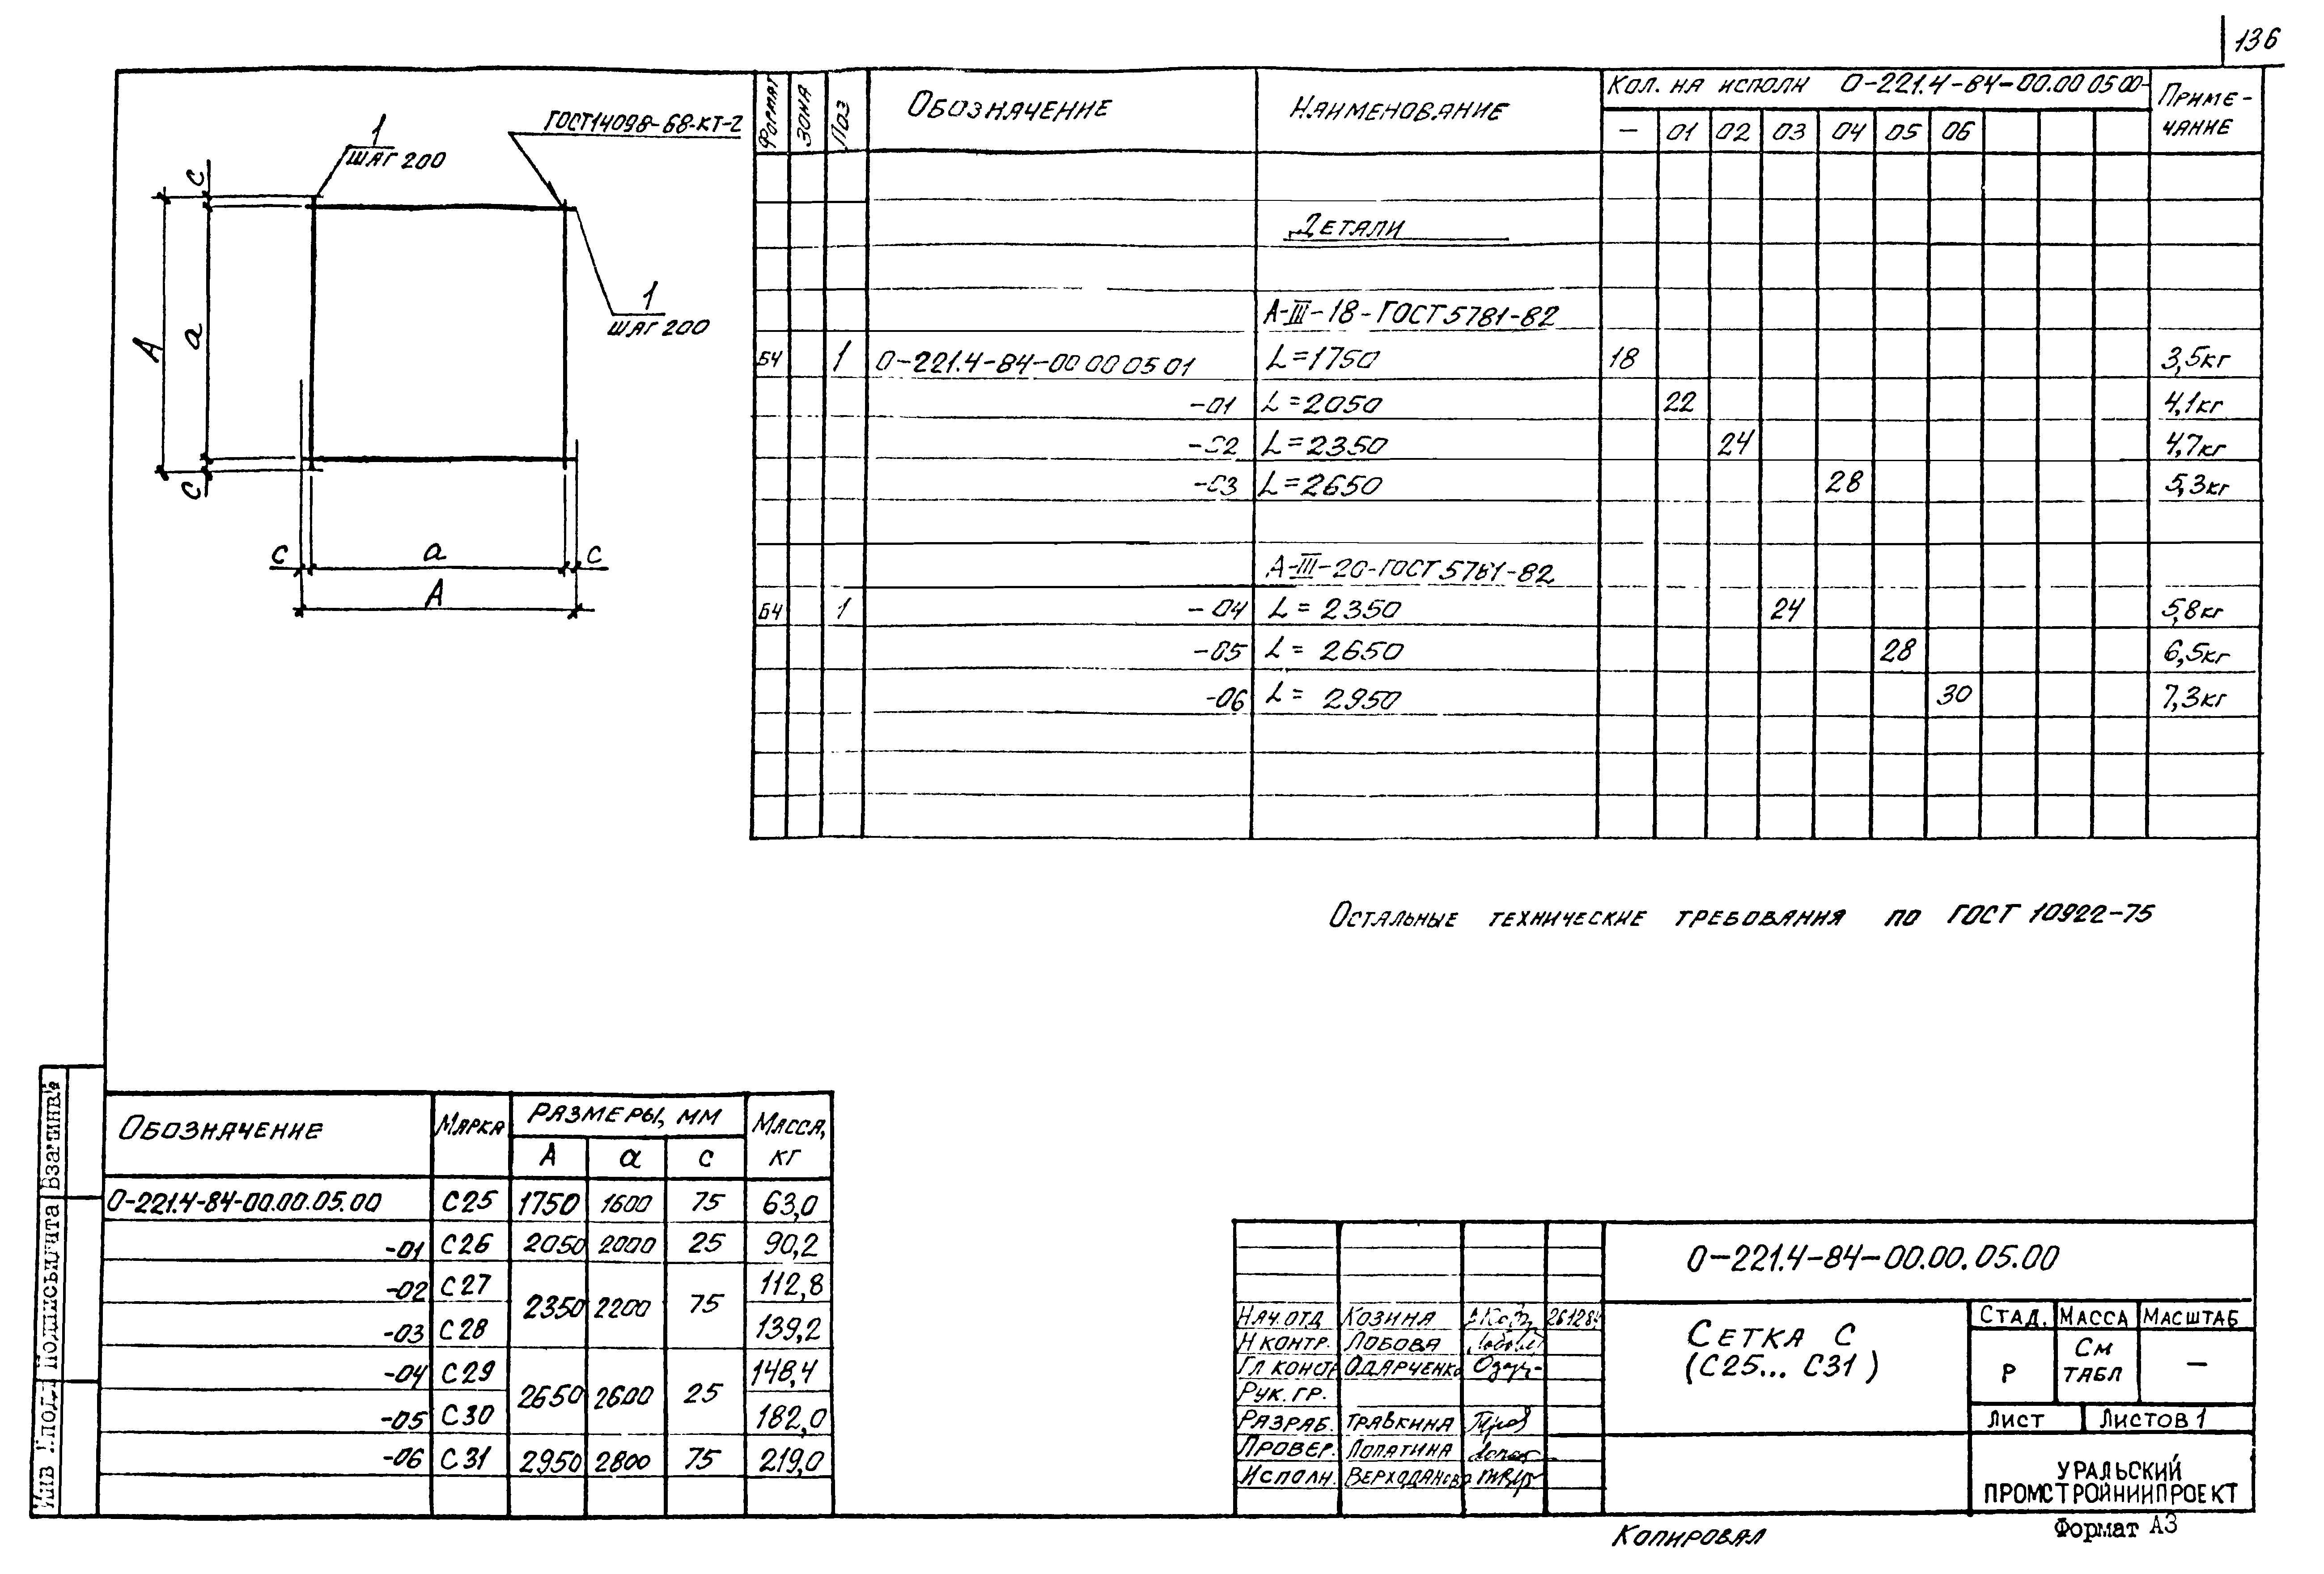 136
ГОСТ14098-68-КТ-2
1
ШАГ 200
1
ШАГ 200
с
А
а
с
с а с
А
ФОРМАТ ЗОНА ПОЗ ОБОЗНАЧЕНИЕ НАИМЕНОВАНИЕ КОЛ. НА ИСПОЛН 0-221.4-84-00.00 05 00- ПРИМЕ-
ЧАНИЕ
— 01 02 03 04 05 06
ДЕТАЛИ
А-III-18-ГОСТ 5781-82
Б4 1 0-221.4-84-00 00 05 01 L=1750 18 3,5кг
-01 L=2050 22 4,1кг
-02 L=2350 24 4,7кг
-03 L=2650 28 5,3кг
А-III-20-ГОСТ 5781-82
Б4 1 -04 L= 2350 24 5,8кг
-05 L= 2650 28 6,5кг
-06 L= 2950 30 7,3кг
ОСТАЛЬНЫЕ ТЕХНИЧЕСКИЕ ТРЕБОВАНИЯ ПО ГОСТ 10922-75
ОБОЗНАЧЕНИЕ МАРКА РАЗМЕРЫ, ММ МАССА,
КГ
А а с
0-221.4-84-00.00.05.00 С25 1750 1600 75 63,0
-01 С26 2050 2000 25 90,2
-02 С27 2350 2200 75 112,8
-03 С28 139,2
-04 С29 2650 2600 25 148,4
-05 С30 182,0
-06 С31 2950 2800 75 219,0
0-221.4-84-00.00.05.00
НАЧ.ОТД КОЗИНА 261284
Н КОНТР. ЛОБОВА
ГЛ КОНСТР ОДАРЧЕНКО
РУК. ГР.
РАЗРАБ. ТРАВКИНА
ПРОВЕР. ЛОПАТИНА
ИСПОЛН.
СЕТКА С
(С25... С31)
СТАД. МАССА МАСШТАБ
Р СМ
ТАБЛ —
ЛИСТ ЛИСТОВ 1
УРАЛЬСКИЙ
ПРОМСТРОЙНИИПРОЕКТ
КОПИРОВАЛ
Формат А3